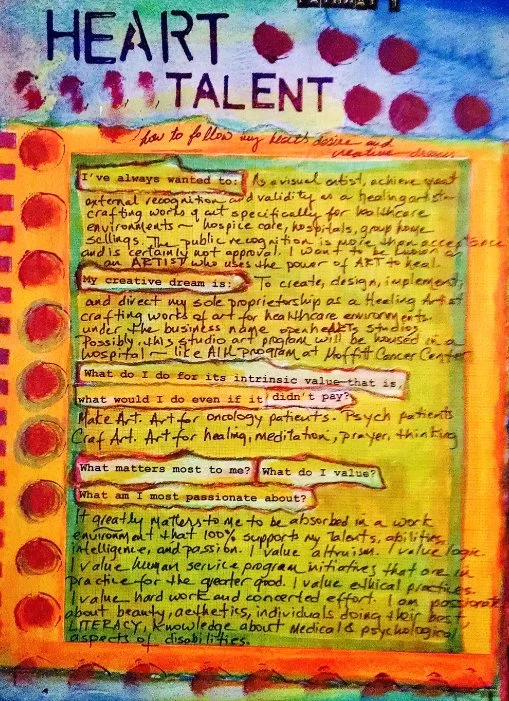 PATHWAY 1
HEART
TALENT
how to follow my heart's desire and
creative dream
I've always wanted to: As a visual artist, achieve great
external recognition and validity as a healing artist
crafting works of art specifically for healthcare
environments — hospice care, hospitals, group home
settings. The public recognition is more than acceptance
and is certainly not approval. I want to be known as
an ARTIST who uses the power of ART to heal.
My creative dream is: To create, design, implement,
and direct my sole proprietorship as a Healing Artist
crafting works of art for healthcare environments.
under the business name openheARTs studios
Possibly, this studio art program will be housed in a
hospital — like AIH program at Moffitt Cancer Center
What do I do for its intrinsic value—that is,
what would I do even if it didn't pay?
Make Art. Art for oncology patients. Psych patients
Craf Art. Art for healing, meditation, prayer, thinking
What matters most to me? What do I value?
What am I most passionate about?
It greatly matters to me to be absorbed in a work
environment that 100% supports my talents, abilities,
intelligence, and passion. I value altruism. I value logic.
I value human service program initiatives that are in
practice for the greater good. I value ethical practices.
I value hard work and concerted effort. I am passionate
about beauty, aesthetics, individuals doing their best,
LITERACY, Knowledge about medical & psychological
aspects of disabilities.